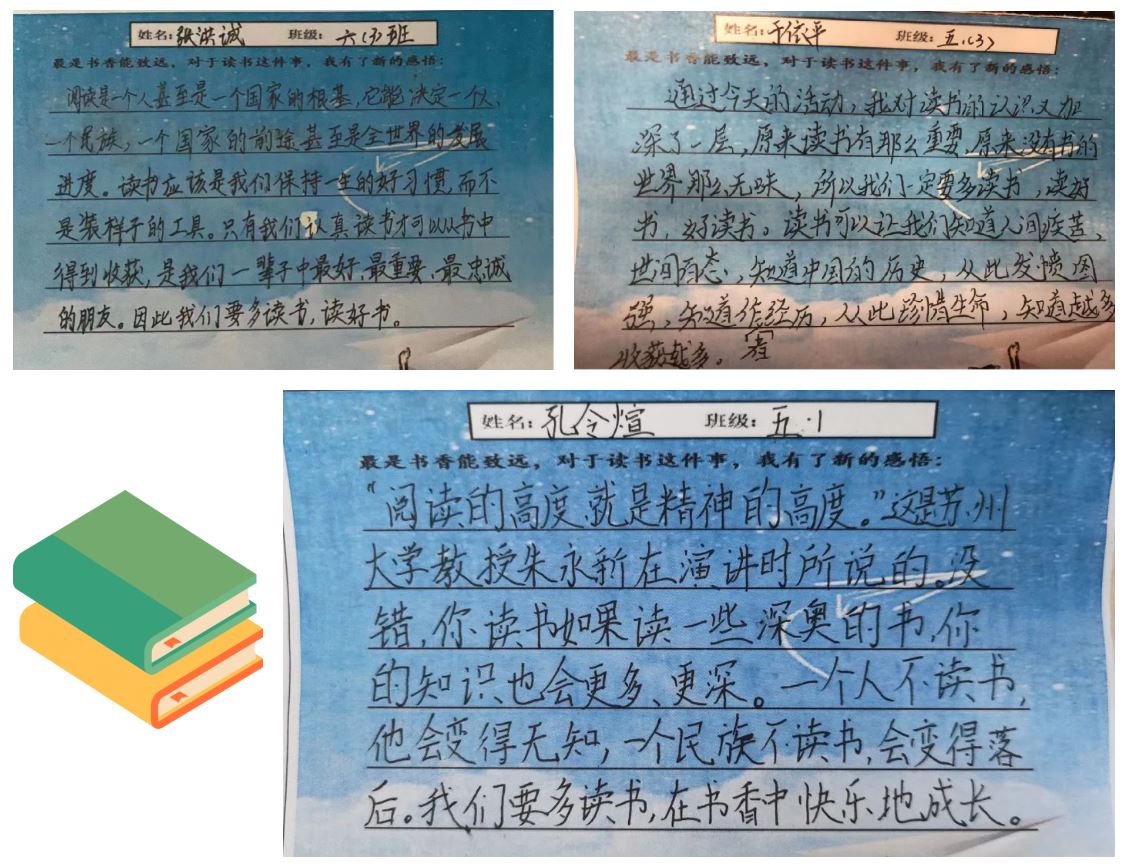 姓名：张洪诚 班级：六(3)班
最是书香能致远，对于读书这件事，我有了新的感悟：
阅读是一个人甚至是一个国家的根基，它能决定一个人、
一个民族，一个国家的前途甚至是全世界的发展
进度。读书应该是我们保持一生的好习惯，而不
是装样子的工具。只有我们认真读书才可以从书中
得到收获，是我们一辈子中最好、最重要、最忠诚
的朋友。因此我们要多读书，读好书。
姓名：于依平 班级：五.(3)
最是书香能致远，对于读书这件事，我有了新的感悟：
通过今天的活动，我对读书的认识又加
深了一层，原来读书有那么重要，原来没有书的
世界那么无味，所以我们一定要多读书，读好
书，好读书。读书可以让我们知道人间疾苦，
世间百态，知道中国的历史，从此发愤图
强，知道作者经历，从此珍惜生命，知道越多
收获越多。
姓名：孔令煊 班级：五.1
最是书香能致远，对于读书这件事，我有了新的感悟：
“阅读的高度，就是精神的高度。”这是苏州
大学教授朱永新在演讲时所说的。没
错，你读书如果读一些深奥的书，你
的知识也会更多、更深。一个人不读书，
他会变得无知，一个民族不读书，会变得落
后。我们要多读书，在书香中快乐地成长。